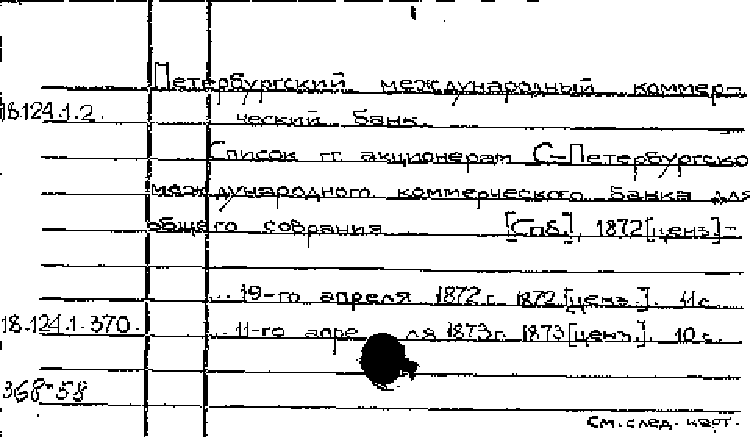 Петербургский международный коммер-
18.124.1.2 ческий банк.
Список гг. акционерам С-Петербургско
международного коммерческого банка для
общего собрания [Спб], 1872 [ценз] -
... 19-го апреля 1872 г. 1872 [ценз.]. 11 с.
18.124.1.370. ... 11-го апреля 1873 г. 1873 [ценз.]. 10 с.
368-58
См. след. карт.